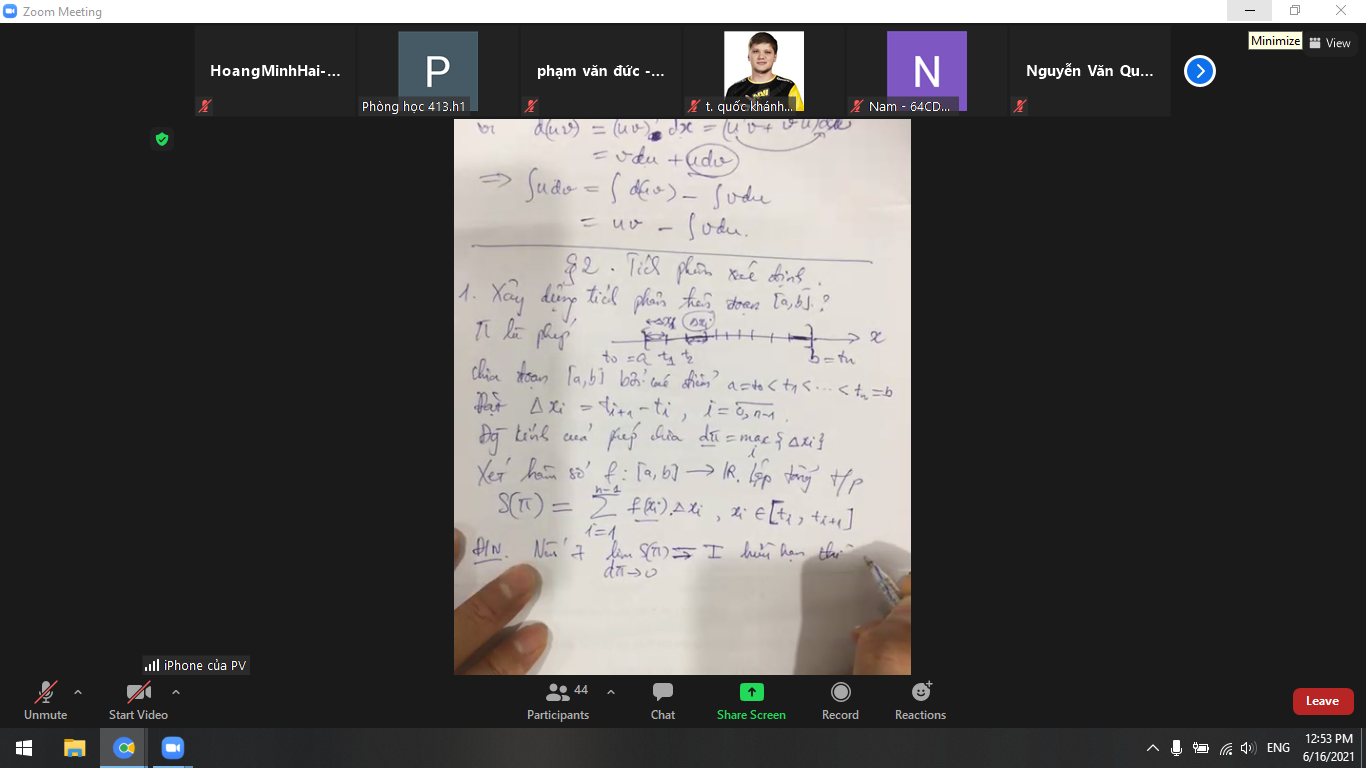 Zoom Meeting
Minimize
View
HoangMinhHai-...
P
Phòng học 413.h1
phạm văn đức -...
t. quốc khánh...
N
Nam - 64CD...
Nguyễn Văn Qu...
d(uv) = (uv)' dx = (u'v + v'u)dx
= vdu + udv
⇒ ∫udv = ∫d(uv) - ∫vdu
= uv - ∫vdu.
§2. Tích phân xác định.
1. Xây dựng tích phân trên đoạn [a,b].?
Δxi
π là phép x
t0 = a t1 t2 b = tn
chia đoạn [a,b] bởi các điểm a = t0 < t1 < ... < tn = b
Đặt Δxi = ti+1 - ti, i = 0,n-1.
Đg kính của phép chia dπ = max{Δxi}
i
Xét hàm số f: [a,b] → R. Lập tổng t/p
n-1
S(π) = ∑ f(xi).Δxi, xi ∈ [ti, ti+1]
i=1
Đ/N. Nếu ∃ lim S(π) = I hữu hạn thì
dπ→0
iPhone của PV
Unmute
Start Video
Participants
44
Chat
Share Screen
Record
Reactions
Leave
ENG
12:53 PM
6/16/2021